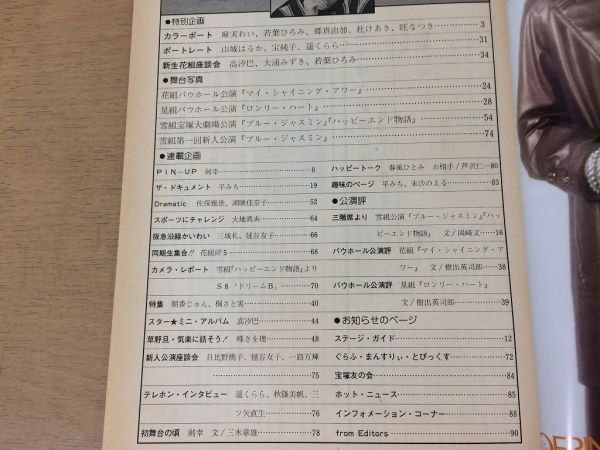 ●特別企画
カラーポート 麻実れい、若葉ひろみ、郷真由加、杜けあき、旺なつき……3
ポートレート 山城はるか、宝純子、遥くらら……31
新生花組座談会 高汐巴、大浦みずき、若葉ひろみ……34
●舞台写真
花組バウホール公演『マイ・シャイニング・アワー』……24
星組バウホール公演『ロンリー・ハート』……28
雪組宝塚大劇場公演『ブルー・ジャスミン』『ハッピーエンド物語』……54
雪組第一回新人公演『ブルー・ジャスミン』……74
●連載企画
PIN－UP 剣幸……8
ザ・ドキュメント 平みち……19
Dramatic 佐保雅世、湖映佳奈子……52
スポーツにチャレンジ 大地真央……64
阪急沿線かいわい 三城礼、毬谷友子……66
同期生集合!! 花組研5……68
カメラ・レポート 雪組『ハッピーエンド物語』より
S8「ドリームB」……70
特集 朝香じゅん、桐さと実……40
スター★ミニ・アルバム 高汐巴……44
草野旦・気楽に話そう! 峰さを理……48
新人公演座談会 日比野桃子、毬谷友子、一路万輝
……75
テレホン・インタビュー 遥くらら、秋篠美帆、三
ツ矢直生……76
初舞台の頃 剣幸 文/三木章雄……78
ハッピートーク 春風ひとみ お相手/芦沢仁…80
趣味のページ 平みち、未沙のえる……83
●公演評
三階席より 雪組公演『ブルー・ジャスミン』『ハッ
ピーエンド物語』 文/岡崎文…16
バウホール公演評 花組『マイ・シャイニング・ア
ワー』 文/樹出英司郎…38
バウホール公演評 星組『ロンリー・ハート』
文/樹出英司郎……39
●お知らせのページ
ステージ・ガイド……12
ぐらふ・まんすりぃ・とぴっくす……72
宝塚友の会……84
ホット・ニュース……85
インフォメーション・コーナー……88
from Editors……90